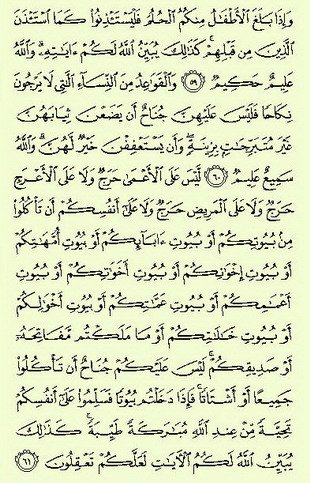 وَإِذَا بَلَغَ ٱلْأَطْفَٰلُ مِنكُمُ ٱلْحُلُمَ فَلْيَسْتَـْٔذِنُوا۟ كَمَا ٱسْتَـْٔذَنَ
ٱلَّذِينَ مِن قَبْلِهِمْ ۚ كَذَٰلِكَ يُبَيِّنُ ٱللَّهُ لَكُمْ ءَايَٰتِهِۦ ۗ وَٱللَّهُ
عَلِيمٌ حَكِيمٌ ٥٩ وَٱلْقَوَٰعِدُ مِنَ ٱلنِّسَآءِ ٱلَّٰتِى لَا يَرْجُونَ
نِكَاحًا فَلَيْسَ عَلَيْهِنَّ جُنَاحٌ أَن يَضَعْنَ ثِيَابَهُنَّ
غَيْرَ مُتَبَرِّجَٰتٍۭ بِزِينَةٍ ۖ وَأَن يَسْتَعْفِفْنَ خَيْرٌ لَّهُنَّ ۗ وَٱللَّهُ
سَمِيعٌ عَلِيمٌ ٦٠ لَّيْسَ عَلَى ٱلْأَعْمَىٰ حَرَجٌ وَلَا عَلَى ٱلْأَعْرَجِ
حَرَجٌ وَلَا عَلَى ٱلْمَرِيضِ حَرَجٌ وَلَا عَلَىٰٓ أَنفُسِكُمْ أَن تَأْكُلُوا۟
مِنۢ بُيُوتِكُمْ أَوْ بُيُوتِ ءَابَآئِكُمْ أَوْ بُيُوتِ أُمَّهَٰتِكُمْ
أَوْ بُيُوتِ إِخْوَٰنِكُمْ أَوْ بُيُوتِ أَخَوَٰتِكُمْ أَوْ بُيُوتِ
أَعْمَٰمِكُمْ أَوْ بُيُوتِ عَمَّٰتِكُمْ أَوْ بُيُوتِ أَخْوَٰلِكُمْ
أَوْ بُيُوتِ خَٰلَٰتِكُمْ أَوْ مَا مَلَكْتُم مَّفَاتِحَهُۥٓ
أَوْ صَدِيقِكُمْ ۚ لَيْسَ عَلَيْكُمْ جُنَاحٌ أَن تَأْكُلُوا۟
جَمِيعًا أَوْ أَشْتَاتًا ۚ فَإِذَا دَخَلْتُم بُيُوتًا فَسَلِّمُوا۟ عَلَىٰٓ أَنفُسِكُمْ
تَحِيَّةً مِّنْ عِندِ ٱللَّهِ مُبَٰرَكَةً طَيِّبَةً ۚ كَذَٰلِكَ
يُبَيِّنُ ٱللَّهُ لَكُمُ ٱلْءَايَٰتِ لَعَلَّكُمْ تَعْقِلُونَ ٦١